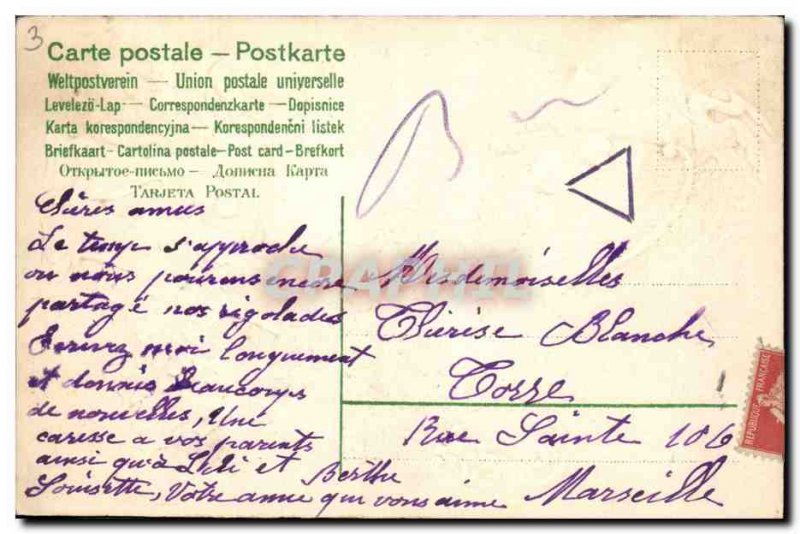 3
Carte postale — Postkarte
Weltpostverein — Union postale universelle
Levelező-Lap — Correspondenzkarte — Dopisnice
Karta korespondencyjna — Korespondenční lístek
Briefkaart - Cartolina postale - Post card - Brefkort
Открытое-письмо — Дописна Карта
Tarjeta Postal
Chères amies
Le temps s'approche
ou nous pourons encore
partagé nos rigolades
Ecrivez moi longuement
et donnés beaucoups
de nouvelles, Une
caresse a vos parents
ainsi qu'à Lili et Berthe
Louisette, Votre amie qui vous aime
Mesdemoiselles
Thérèse Blanche
Torre
Rue Sainte 106
Marseille
REPUBLIQUE FRANÇAISE